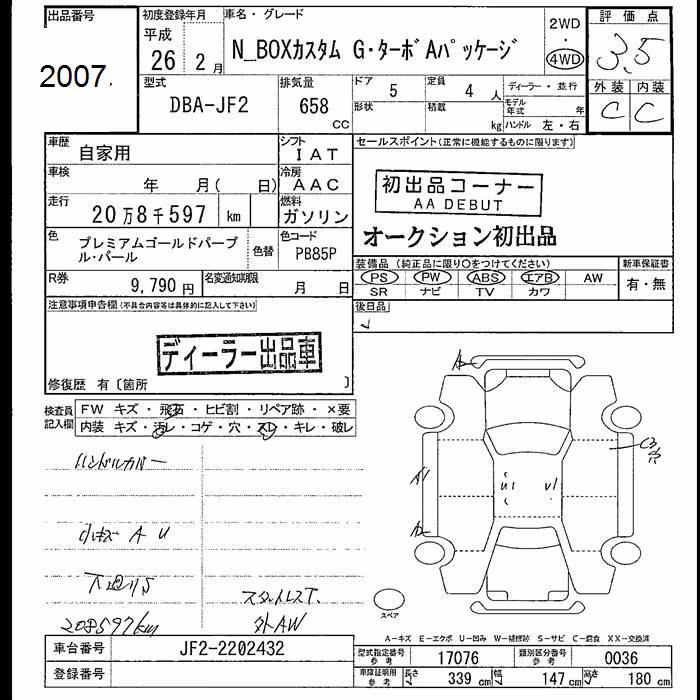 出品番号
2007.
初度登録年月
平成
26 2月
車名・グレード
N_BOXカスタム G・ターボAパッケージ
2WD
・
4WD
評価点
3.5
外装 内装
C C
型式
DBA-JF2
排気量
658
CC
ドア 5
定員 4 人
形状
積載
kg
ディーラー・並行
モデル年式 年
ハンドル 左・右
車歴 自家用
シフト IAT
車検 年 月( 日)
冷房 AAC
走行 20万8千597 km
燃料 ガソリン
色 プレミアムゴールドパープル・パール
色替
色コード PB85P
R券 9,790円
名変通知期限 月 日
セールスポイント(正常に機能するものに限ります)
初出品コーナー
AA DEBUT
オークション初出品
装備品(純正品に限り○をつけてください)
PS PW ABS エアB AW
SR ナビ TV カワ
新車保証書
有・無
注意事項申告欄(不具合内容等は具体的に記入して下さい)
後日品
ディーラー出品車
修復歴 有〔箇所 〕
検査員記入欄
FW キズ・飛石・ヒビ割・リペア跡・×要
内装 キズ・汚レ・コゲ・穴・スレ・キレ・破レ
ハンドルカバー
小キズ A U
下廻りS
スタットレスT.
208597km
外AW
A
A1
A2
U1
U1
C3
穴
スペア
A-キズ E-エクボ U-凹み W-補修跡 S-サビ C-腐食 XX-交換済
車台番号 JF2-2202432
登録番号
型式指定番号 参考 17076
類別区分番号 参考 0036
車庫証明用 参考 長さ 339 cm 幅 147 cm 高さ 180 cm